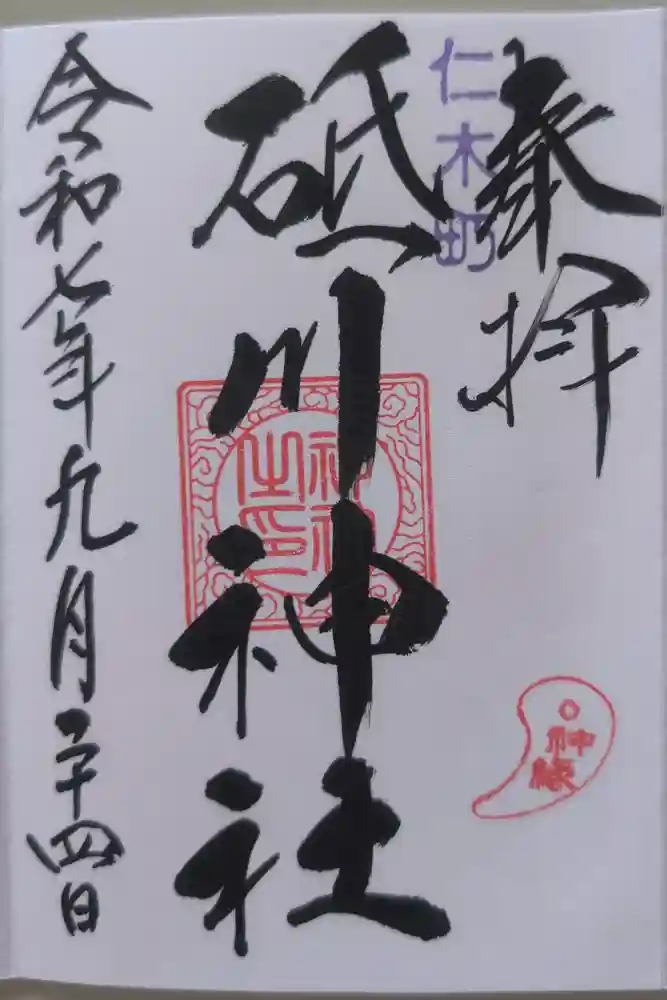 奉拝
仁木町
砥川神社
神社
之印
神縁
令和七年九月二十四日